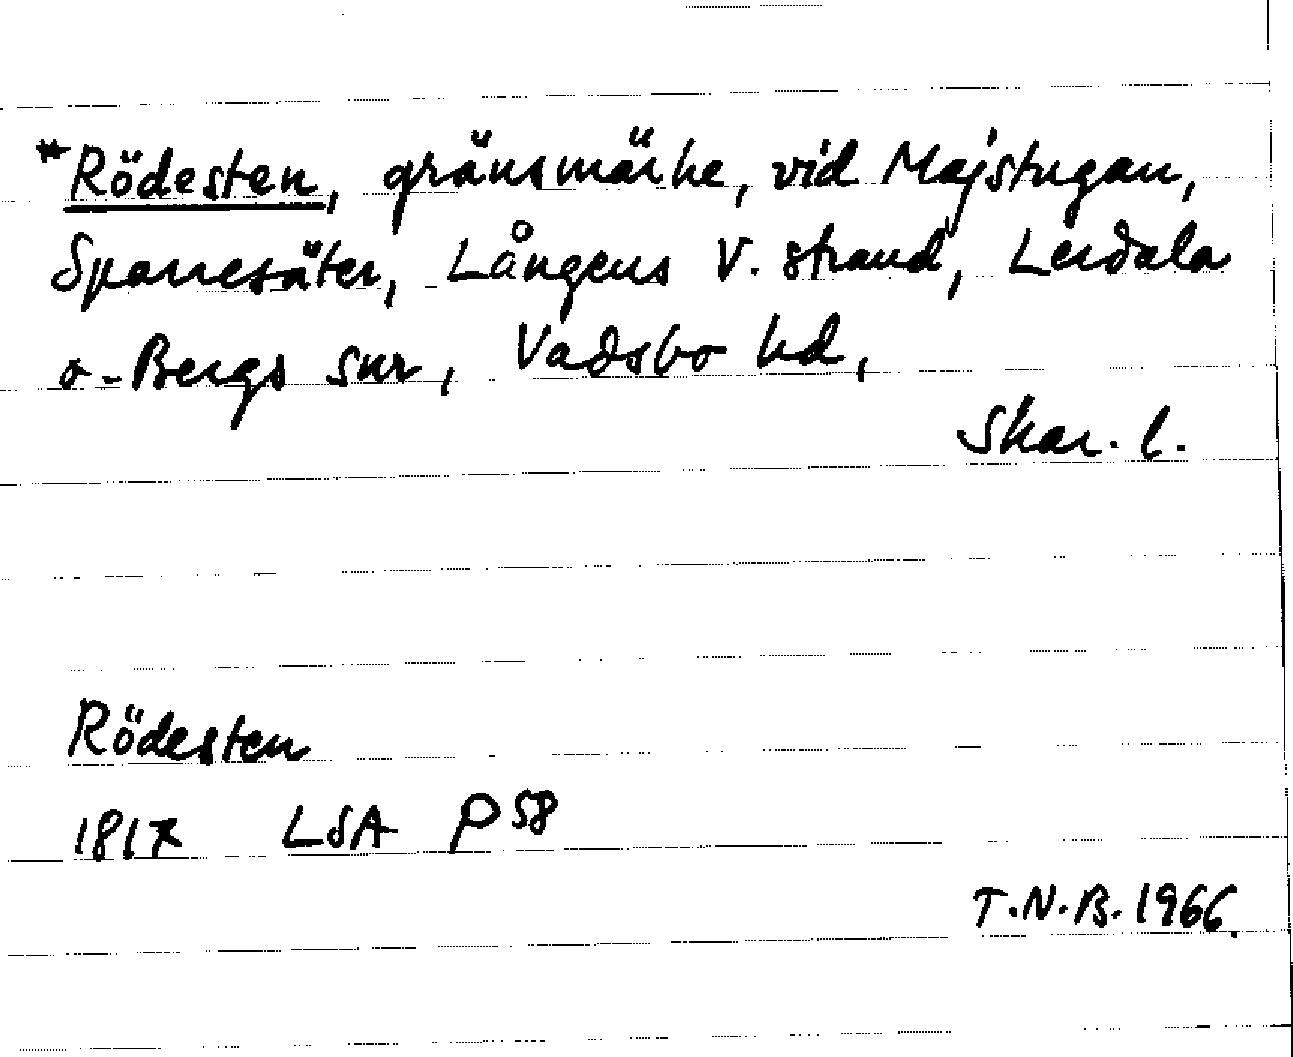 *Rödesten, gränsmärke, vid Majstugan,
Sparresäter, Långens V. strand, Lerdala
o. Bergs snr, Vadsbo hd,
Skar. l.
Rödesten
1817 LSA P 58
T.N.B. 1966.